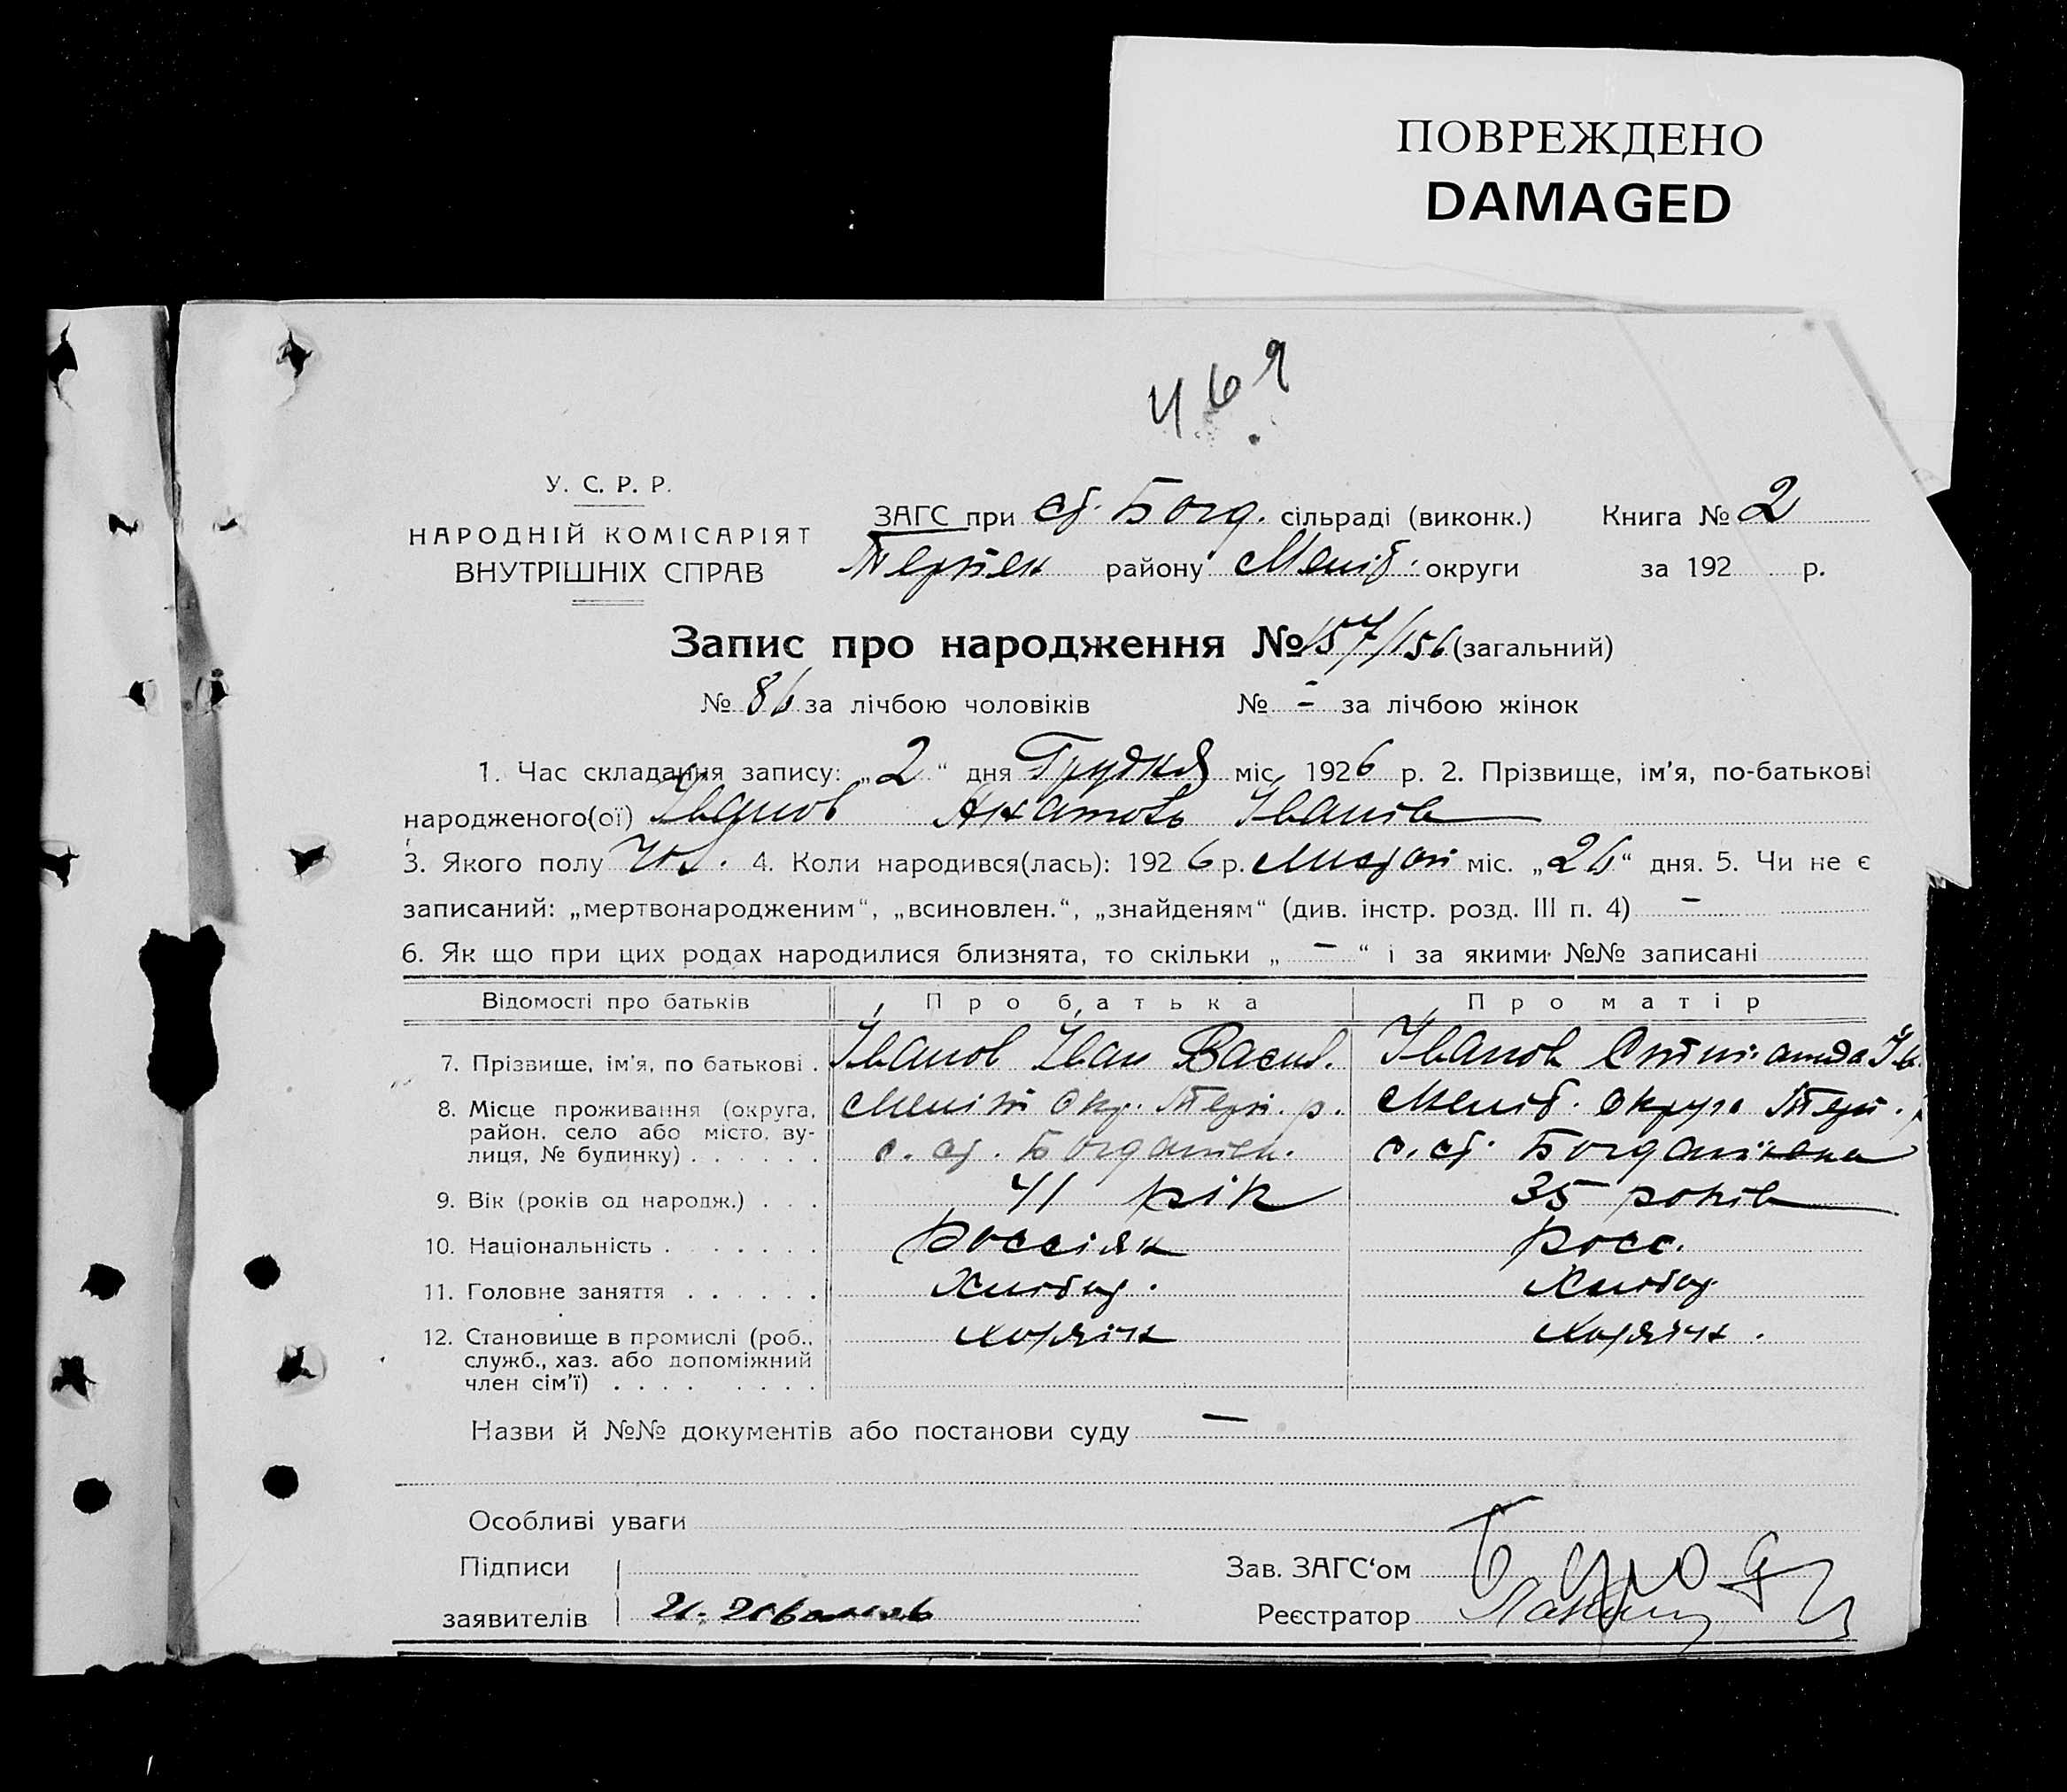 ПОВРЕЖДЕНО
DAMAGED
469
У. С. Р. Р.
НАРОДНІЙ КОМІСАРІЯТ
ВНУТРІШНІХ СПРАВ
ЗАГС при ст. Богд. сільраді (виконк.) Книга № 2
району Меліт. округи за 192 р.
Запис про народження № 157/156 (загальний)
№ 86 за лічбою чоловіків № - за лічбою жінок
1. Час складання запису: „2“ дня Грудня міс. 1926 р. 2. Прізвище, ім’я, по-батькові
народженого(ої) Іванов Анатоль Іванів
3. Якого полу чол. 4. Коли народився(лась): 1926 р. міс. „26“ дня. 5. Чи не є
записаний: „мертвонародженим“, „всиновлен.“, „знайденям“ (див. інстр. розд. III п. 4) –
6. Як що при цих родах народилися близнята, то скільки „ – “ і за якими №№ записані
Відомості про батьків Про батька Про матір
7. Прізвище, ім’я, по батькові . Іванов Іван Васил. Іванов Ів.
8. Місце проживання (округа, Меліт окр. Терп. р. Меліт. округа Терп.
район, село або місто, ву-
лиця, № будинку) . . . . . . с. ст. Богданівк. с. ст. Богданівка
9. Вік (років од народж.) . . . 41 рік 35 років
10. Національність . . . . . . . россіян росс.
11. Головне заняття . . . . . . Хлібор. Хлібор
12. Становище в промислі (роб., хазяїн хазяїн.
служб., хаз. або допоміжний
член сім’ї) . . . . . . . .
Назви й №№ документів або постанови суду –
Особливі уваги
Підписи Зав. ЗАГС‘ом
заявителів И. Иванов Реєстратор